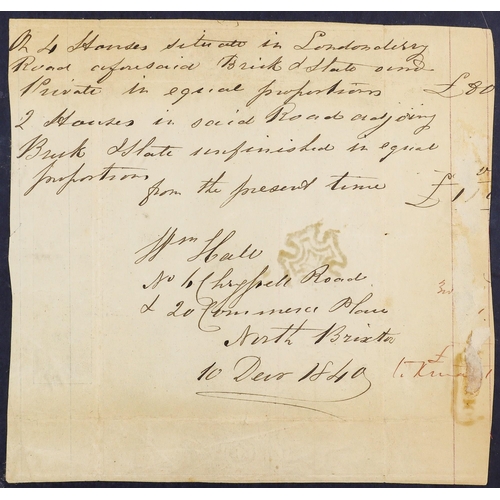 On 4 Houses situate in Londonderry
Road aforesaid Brick & Slate and
Private in equal proportions £80
2 Houses in said Road adjoing
Brick & Slate unfinished in equal
proportions
from the present time £1
Wm Hall
No 4 Chryssell Road
& 20 Commerce Place
North Brixton
10 Decr 1840
£